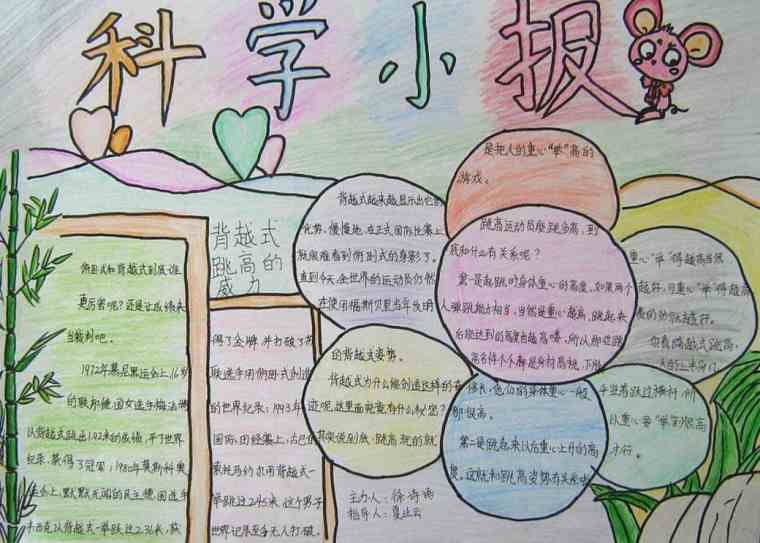 科学小报
背越式
跳高的
威力
俯卧式和背越式到底谁
更厉害呢？还是让成绩来
当裁判吧。
1972年慕尼黑运动会上，16岁
的联邦德国女选手梅法特
以背越式跳出1.92米的成绩，平了世界
纪录，获得了冠军；1980年莫斯科奥
运会上，默默无闻的民主德国选手
韦西克以背越式一举跃过2.36米，获
得了金牌，并打破了苏
联选手用俯卧式创造
的世界纪录；1993年
国际田径赛上，古巴选
索托马约尔用背越式一
举跳过2.45米，这个男子
世界记录至今无人打破。
背越式越来越显示出它的
优势，慢慢地，在正式国际比赛上
就很难看到俯卧式的身影了。
直到今天，全世界的运动员仍然
在使用福斯贝里当年发明
的背越式姿势。
背越式为什么能创造这样的奇
迹呢？这里面究竟有什么秘密？
其实说到底，跳高玩的就
是把人的重心“举”高的
游戏。
跳高运动员能跳多高，到
底和什么有关系呢？
第一是起跳时身体重心的高度，如果两个
人弹跳能力相当，当然是重心越高，跳起来
后能达到的高度当越高喽，所以那些跳
高名将个个都是身材高挑，下肢
修长，他们的身体重心一般
都很高。
第二是跳起来以后重心上升的高
度。这就和跳高姿势有关系
重心“举”得越高当然
越好，可重心“举”得越高
费的劲就越厉。
你看俯越式跳高，
手当着跃过横杆，所
以重心要“举”到很高
才行。
主力人：徐诗雨
指导人：夏正云